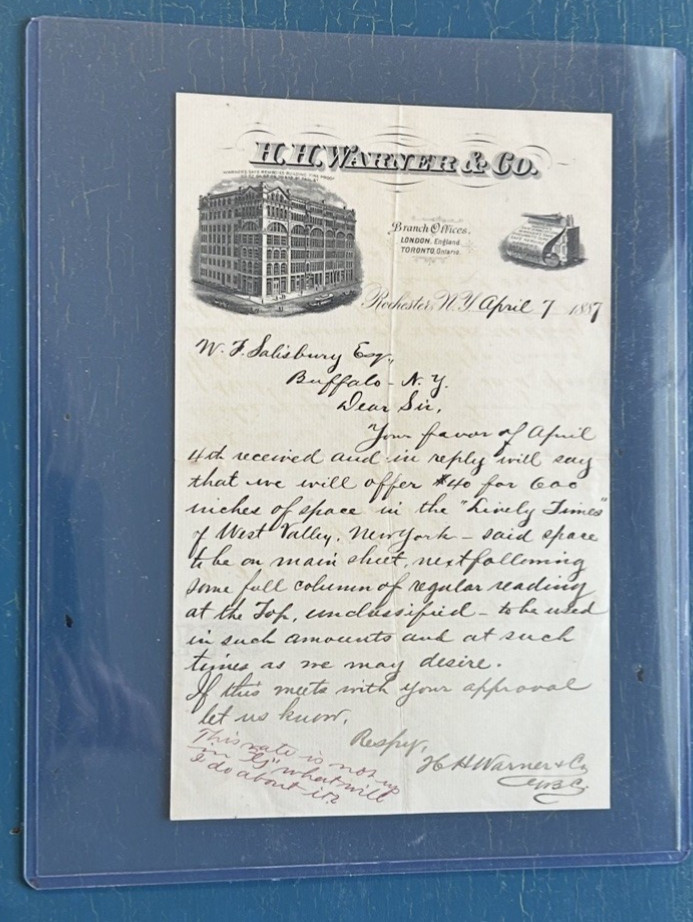 H. H. WARNER & CO.
Branch Offices.
LONDON, England
TORONTO, Ontario.
Rochester, N.Y. April 7 1887
W. F. Salisbury Esq.,
Buffalo - N. Y.
Dear Sir,
Your favor of April
4th received and in reply will say
that we will offer $40 for 600
inches of space in the "Lively Times"
of West Valley, New York - said space
to be on main sheet, next following
some full column of regular reading
at the Top, unclassified - to be used
in such amounts and at such
times as we may desire.
If this meets with your approval
let us know.
Respy,
H H Warner & Co
This rate is not up
in what will
I do about it?